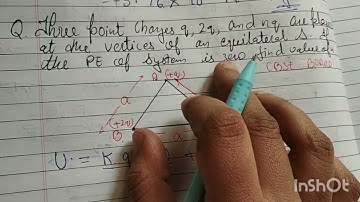 Q. Three point Charges q, 2q, and nq, are pla
at the vertices of an equilateral Δ. If
the PE of System is zero, find value of
CBSE BOARD
A (+q)
a
(+2q)
B
a
U = K q
InShOt